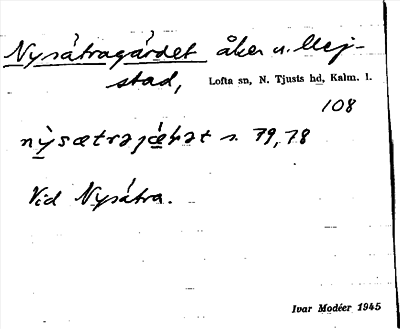 Nysátragárdet åker u. Mej-
stad, Lofta sn, N. Tjusts hd, Kalm. l.
108
s. 79, 78
Vid Nysátra.
Ivar Modéer 1945